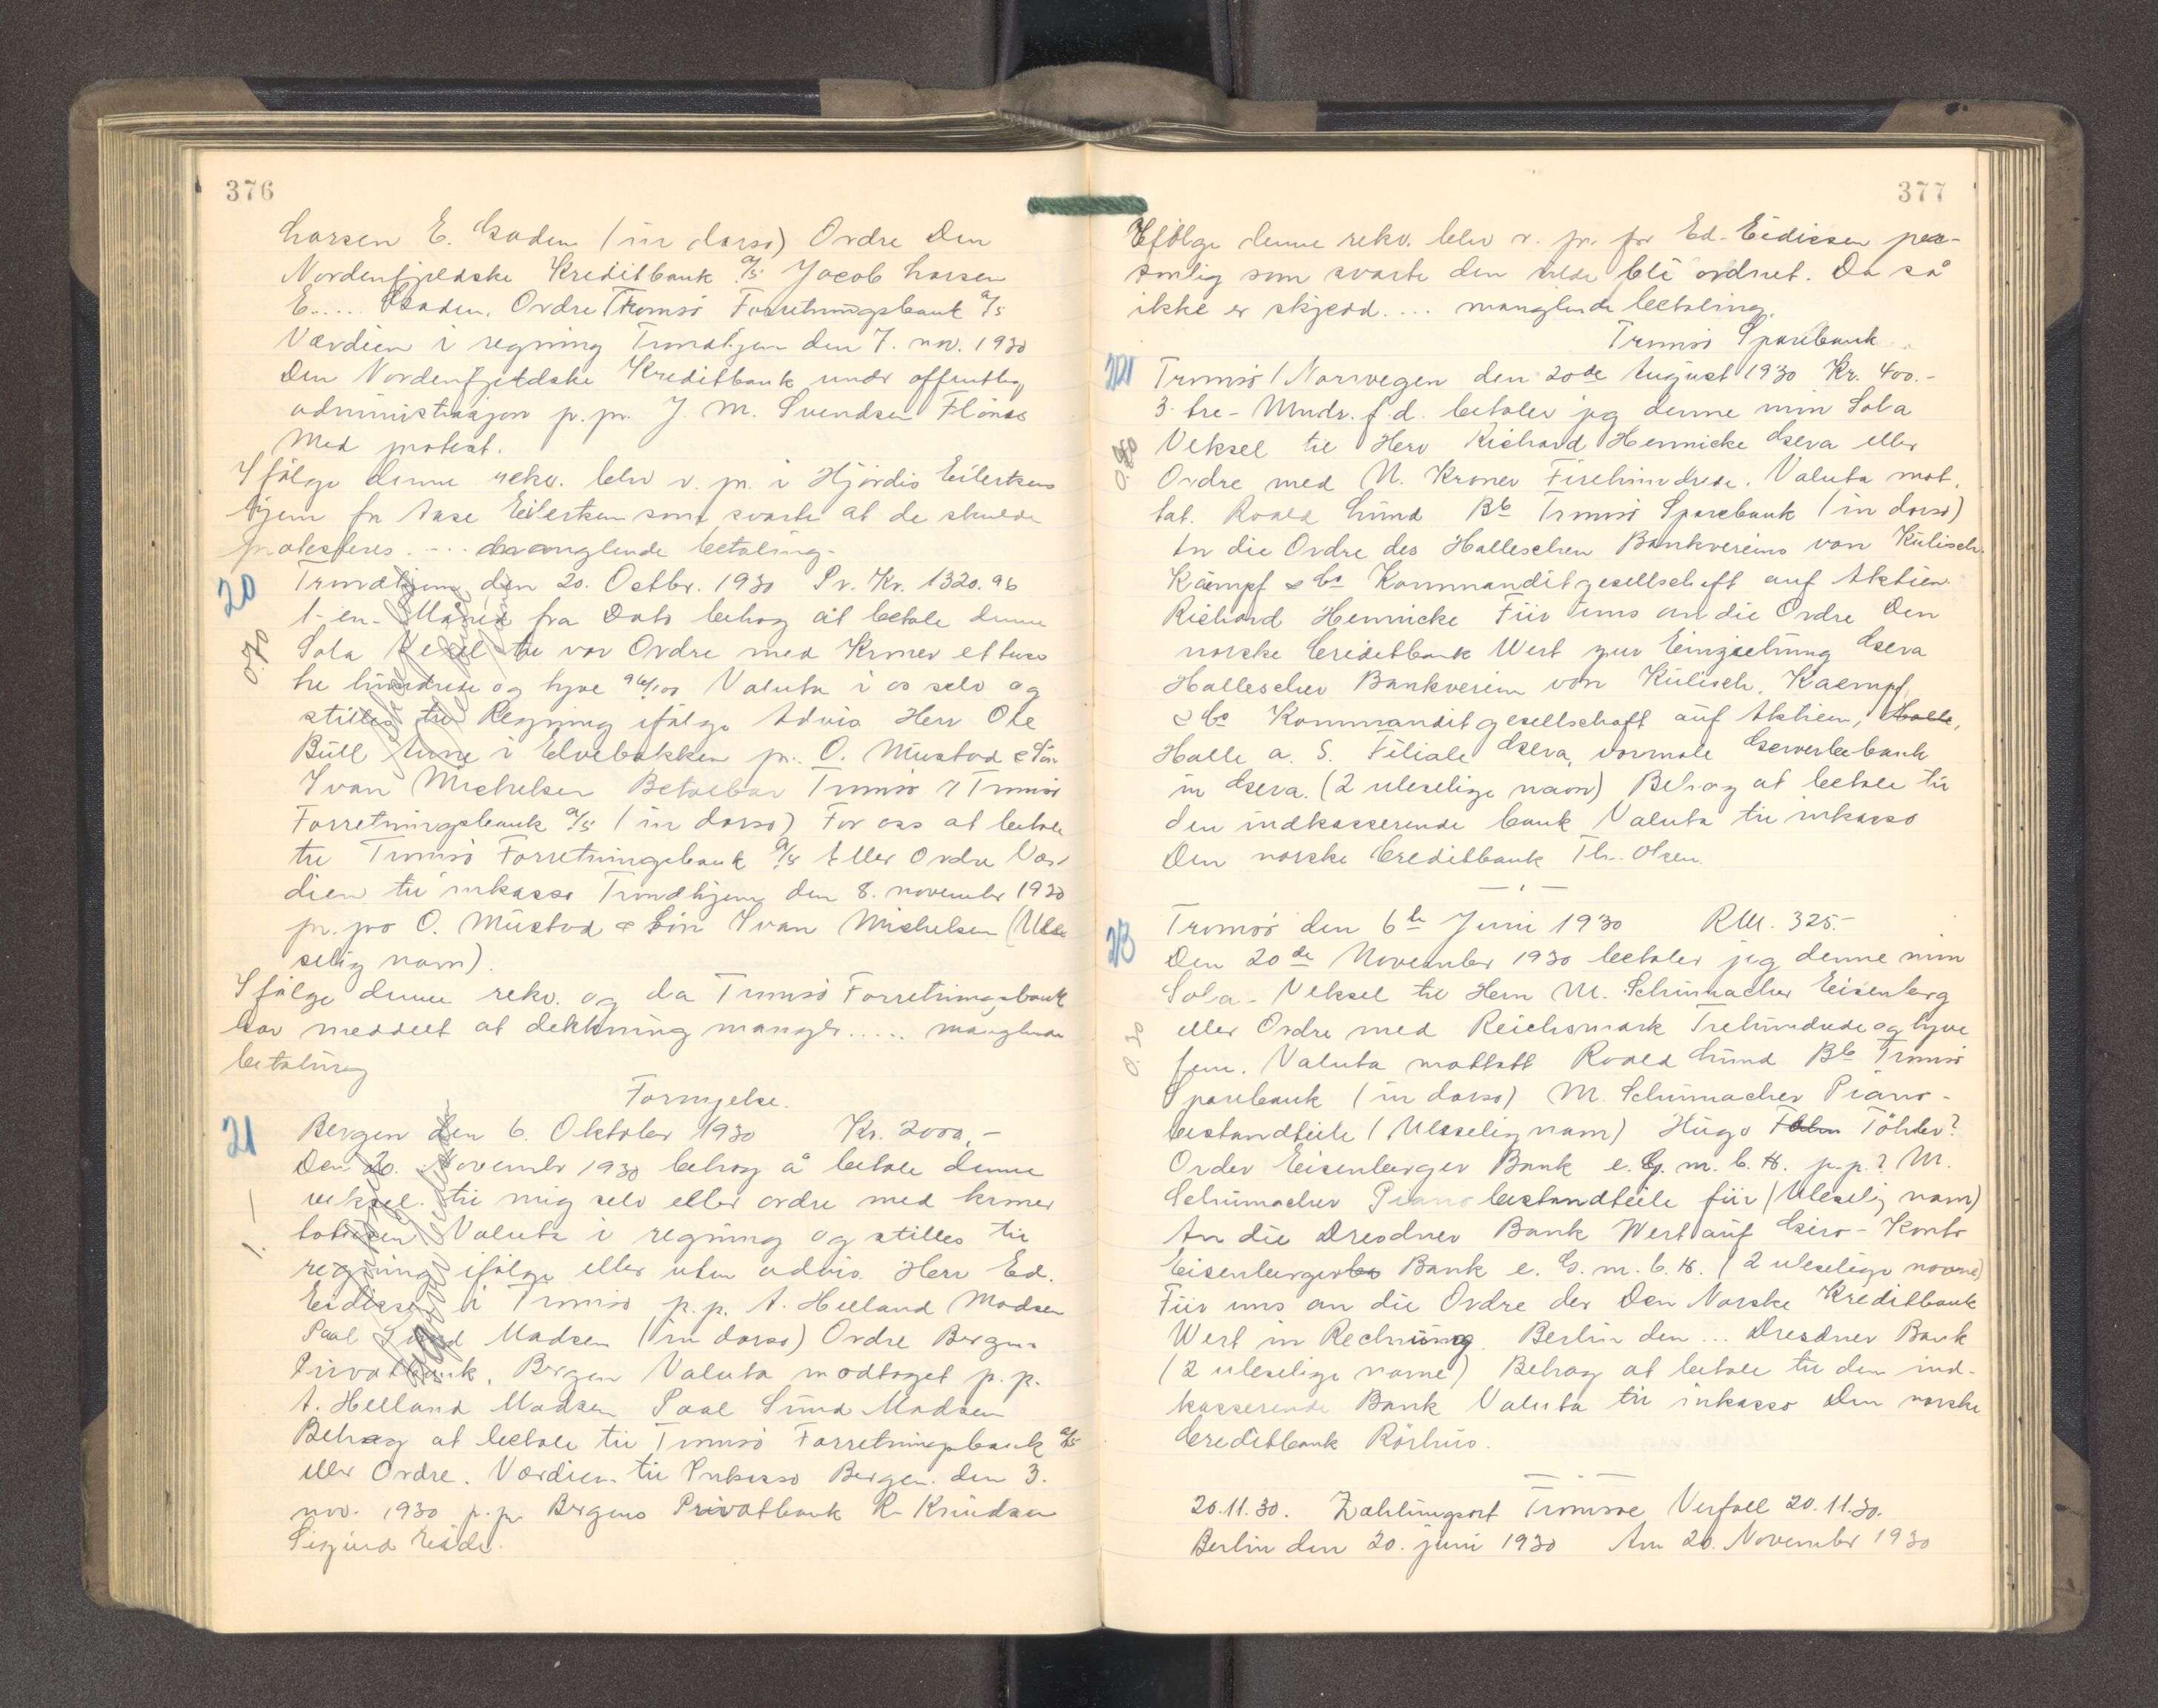 376
Larsen E. Gaden (in dorso) Ordre Den
Nordenfjeldske Kreditbank A/S Jacob Larsen
E..... Gaden. Ordre Tromsö Forretningsbank A/S
Værdien i regning Trondhjem den 7. nov. 1930
Den Nordenfjeldske Kreditbank under offentlig
administrasjon p. pr. J. M. Svendsen Flönes
Med protest.
Ifölge denne rekv. blev v. pr. i Hjördis Eilertsens
hjem fr Aase Eilertsen som svarte at de skulde
protesteres. ... manglende betaling.
20
Trondhjem den 20. Octbr. 1930 Pr. Kr. 1320.96
1- en - Måned fra Dato behag at betale denne
0.70
Sola Vexel til vor Ordre med Kroner ettuse
tre hundrede og tyve 96/100 Valuta i os selv og
stilles til Regning ifölge Advis Herr Ole
Bull Aune i Elvebakken pr. O. Mustad & Sön
Ivan Michelsen Betalbar Tromsö i Tromsö
Forretningsbank A/S (in dorso) For oss at betale
til Tromsö Forretningsbank A/S Eller Ordre Vær
dien til inkasso Trondhjem den 8. november 1930
pr. pro O. Mustad & Sön Ivan Michelsen (Ule
selig navn).
Ifölge denne rekv. og da Tromsö Forretningsbank
har meddelt at dekkning mangler..... manglende
betaling
Fornyelse.
21
Bergen den 6. Oktober 1930 Kr. 2000,-
Den 20. November 1930 behag å betale denne
veksel til mig selv eller ordre med kroner
1. —
totusen Valuta i regning og stilles til
regning ifölge eller uten advis Herr Ed.
Eidissen i Tromsö p.p. A. Helland Madsen
Paal Sund Madsen (in dorso) Ordre Bergens
Privatbank, Bergen Valuta modtaget p.p.
A. Helland Madsen Paal Sund Madsen
Behag at betale til Tromsö Forretningsbank A/S
eller Ordre. Værdien til Inkasso Bergen den 3.
nov. 1930 p.p. Bergens Privatbank R. Knudsen
Sigurd Eide.
377
Ifölge denne rekv. blev v. pr. for Ed. Eidissen per-
sonlig som svarte den vilde bli ordnet. Da så
ikke er skjedd.... manglende betaling.
Tromsö Sparebank
22
Tromsö / Norwegen den 20de August 1930 Kr. 400.-
3- tre - Mndr. f.d. betaler jeg denne min Sola
0.80
Veksel til Herr Richard Hennicke Gera eller
Ordre med N. Kroner Firehundrede. Valuta mot.
tat. Roald Lund Bb Tromsö Sparebank (in dorso)
An die Ordre des Halleschen Bankvereins von Kulisch
Kämpf & Co Kommanditgesellschaft auf Aktien
Richard Hennicke Für uns an die Ordre Den
norske Creditbank Wert zur Einziehung Gera
Hallescher Bankverein von Kulisch, Kaempf,
& Co Kommanditgesellschaft auf Aktien, Halle,
Halle a. S. Filiale Gera, vormals Gewerbebank
in Gera. (2 uleselige navn) Behag at betale til
den indkasserende bank Valuta til inkasso
Den norske Creditbank Th. Olsen.
23
Tromsö den 6te Juni 1930 RM. 325.-
Den 20de November 1930 betaler jeg denne min
Sola - Veksel til Herrn M. Schumacher Eisenberg
eller Ordre med Reichsmark Trehundrede og tyve
0.70
fem. Valuta mottatt Roald Lund Bb Tromsö
Sparebank (in dorso) M. Schumacher Piano-
bestandteile (Uleselig navn) Hugo Töhler?
Order Eisenberger Bank e. G. m. b. H. p.p.? M.
Schumacher Pianobestandteile für (Uleselig navn)
An die Dresdner Bank Wert auf Giro - Konto
Eisenberger Bank e. G. m. b. H. (2 uleselige navne)
Für uns an die Ordre der Den Norske Kreditbank
Wert in Rechnung. Berlin den ... Dresdner Bank
(2 uleselige navne) Behag at betale til den ind-
kasserende Bank Valuta til inkasso Den norske
Creditbank Rörhus.
20.11.30. Zahlungsort Tromsoe Verfall 20.11.30.
Berlin den 20. juni 1930 Am 20. November 1930